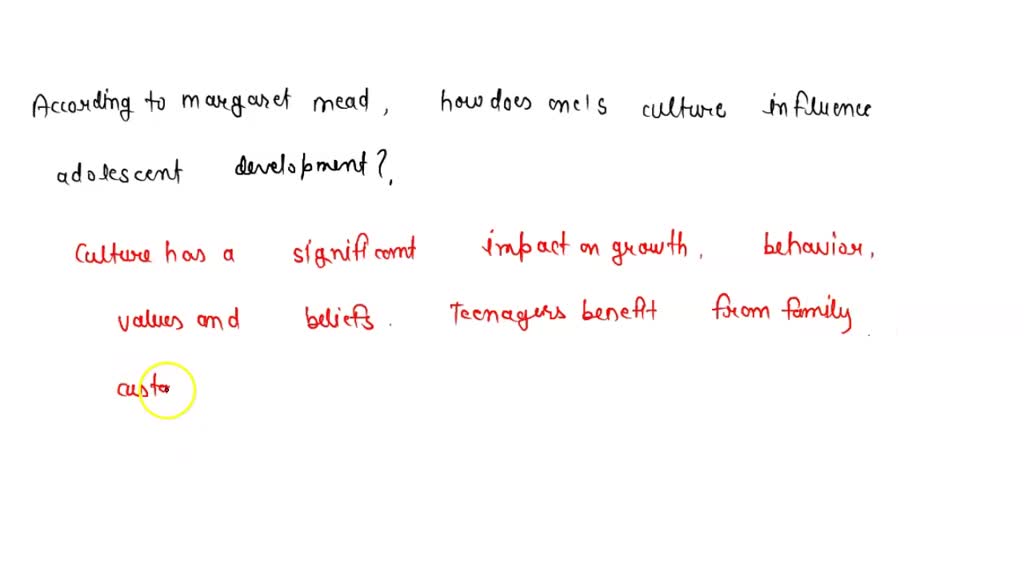 According to margaret mead, how does one's culture influence
adolescent development?,
Culture has a significant impact on growth, behavior,
values and beliefs. Teenagers benefit from family
custo